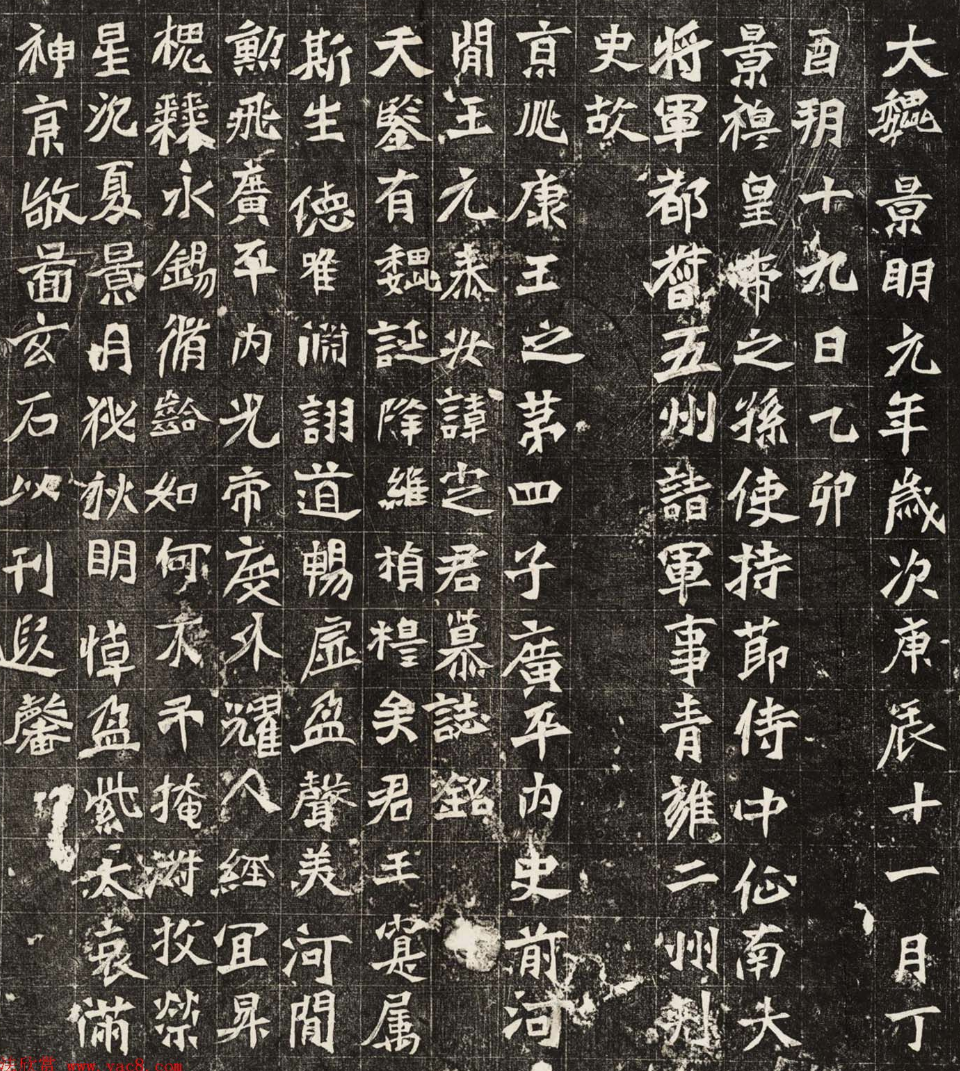 大魏景明元年歲次庚辰十一月丁
酉朔十九日乙卯
景穆皇帝之孫使持節侍中征南大
將軍都督五州諸軍事青雍二州刺
史故
京兆康王之第四子廣平內史前河
間王元泰安諱定君墓誌銘
天鑒有魏誕降維楨禮矣君王寔屬
斯生德唯淵詡道暢虛盈聲美河間
勳飛廣平內光帝度外耀人經宜昇
槐棘永錫脩齡如何不弔掩泭投榮
星沉夏景月秘秋明悼盈紫天哀滿
神京敬圖玄石以刊遐馨
www.yac8.com